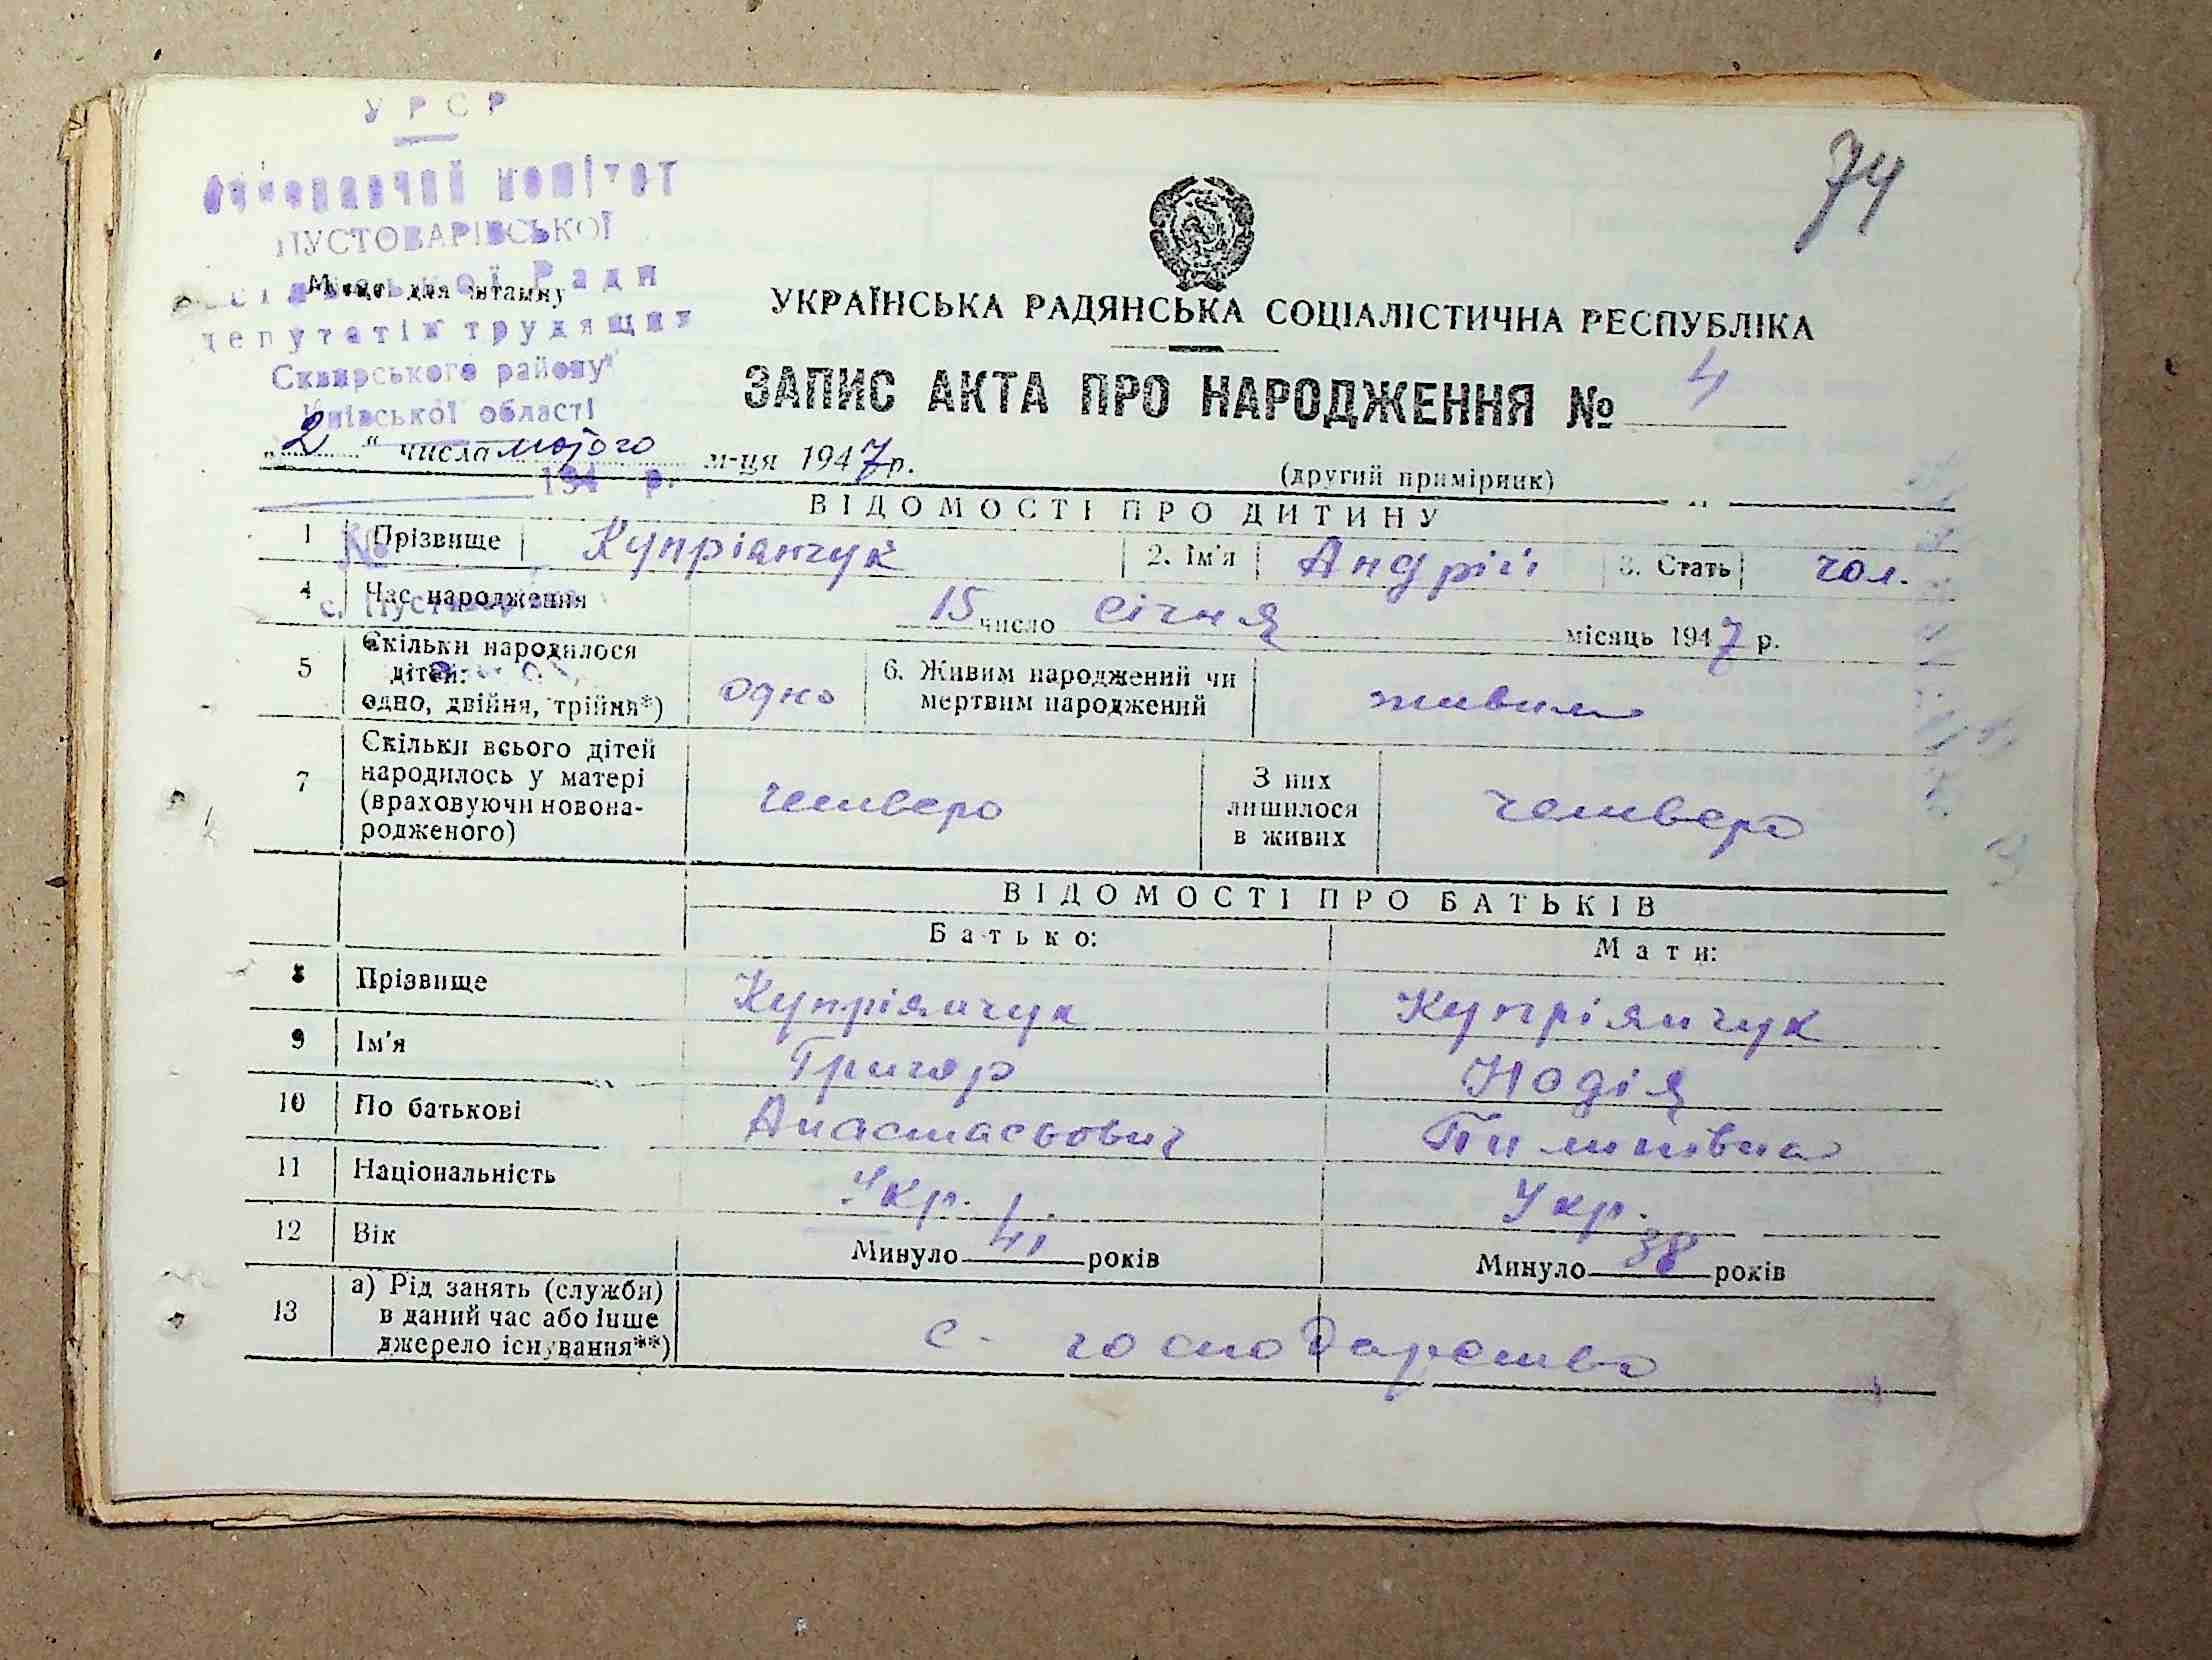 УРСР
74
Виконавчий комітет
ПУСТОВАРІВСЬКОЇ
сільської Ради
Місце для штампу
депутатів трудящих
Сквирського району
Київської області
УКРАЇНСЬКА РАДЯНСЬКА СОЦІАЛІСТИЧНА РЕСПУБЛІКА
ЗАПИС АКТА ПРО НАРОДЖЕННЯ № 4
„2“ числа лютого м-ця 1947 р.
194 р.
(другий примірник)
ВІДОМОСТІ ПРО ДИТИНУ
1 Прізвище Купріянчук 2. Ім'я Андрій 3. Стать чол.
№
4 Час народження 15 число січня місяць 1947 р.
с.
5 Скільки народилося дітей: одно, двійня, трійня*) одно 6. Живим народжений чи мертвим народжений живим
7 Скільки всього дітей народилось у матері (враховуючи новонародженого) четверо З них лишилося в живих четверо
ВІДОМОСТІ ПРО БАТЬКІВ
Батько: Мати:
8 Прізвище Купріянчук Купріянчук
9 Ім'я Григор Надія
10 По батькові Анастасьович Пилипівна
11 Національність Укр. Укр.
12 Вік Минуло 41 років Минуло 38 років
13 а) Рід занять (служби) в даний час або інше джерело існування**) с-господарство